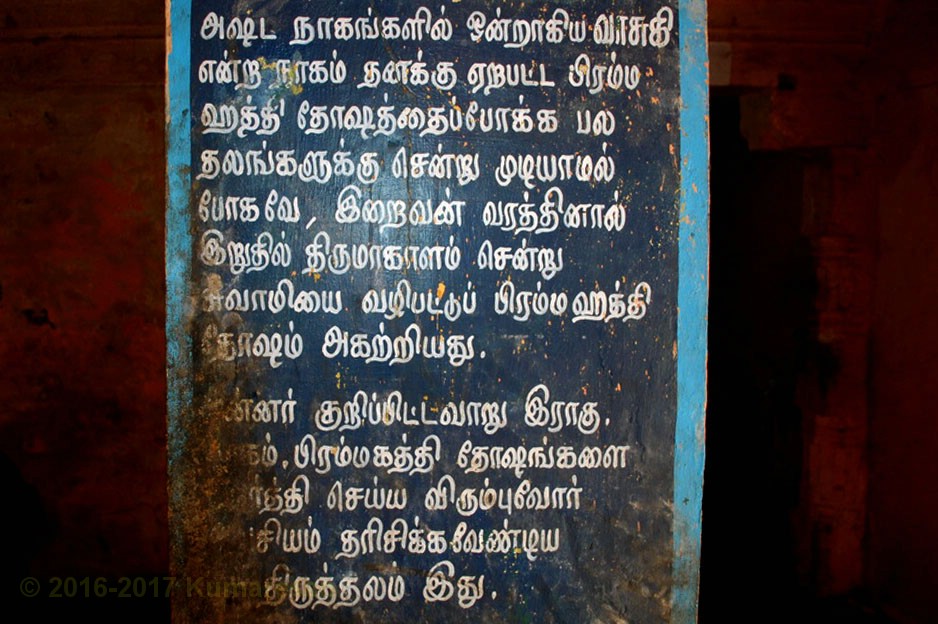 அஷ்ட நாகங்களில் ஒன்றாகிய வாசுகி
என்ற நாகம் தனக்கு ஏற்பட்ட பிரம்ம
ஹத்தி தோஷத்தைப்போக்க பல
தலங்களுக்கு சென்று முடியாமல்
போகவே, இறைவன் வரத்தினால்
இறுதில் திருமாகாளம் சென்று
சுவாமியை வழிபட்டுப் பிரம்மஹத்தி
தோஷம் அகற்றியது.
குறிப்பிட்டவாறு இராகு.
பிரம்மகத்தி தோஷங்களை
செய்ய விரும்புவோர்
தரிசிக்கவேண்டிய
திருத்தலம் இது.
© 2016-2017